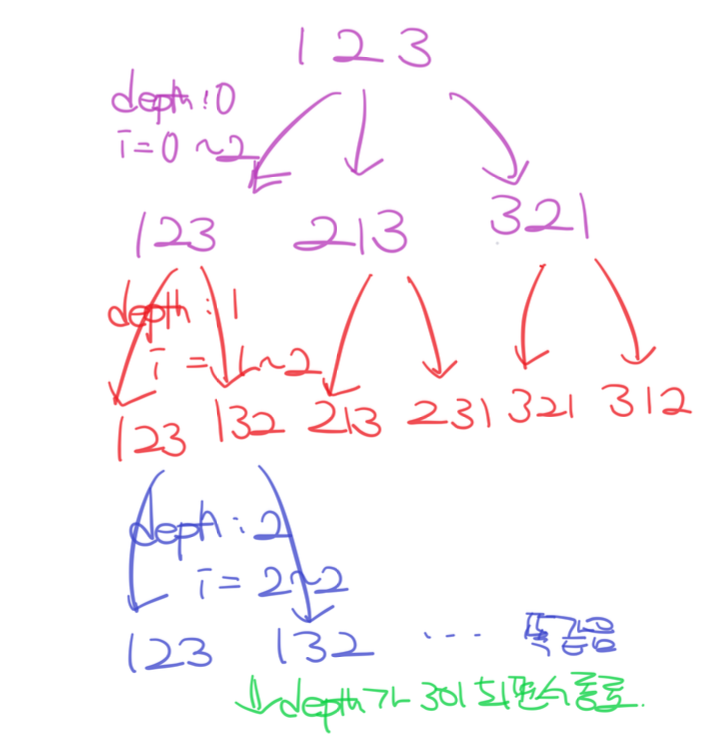 1 2 3
depth : 0
i = 0 ~2
123 213 321
depth : 1
i = 1~2
123 132 213 231 321 312
depth : 2
i = 2~2
123 132 ... 똑같음
depth가 3이 되면서 종료.